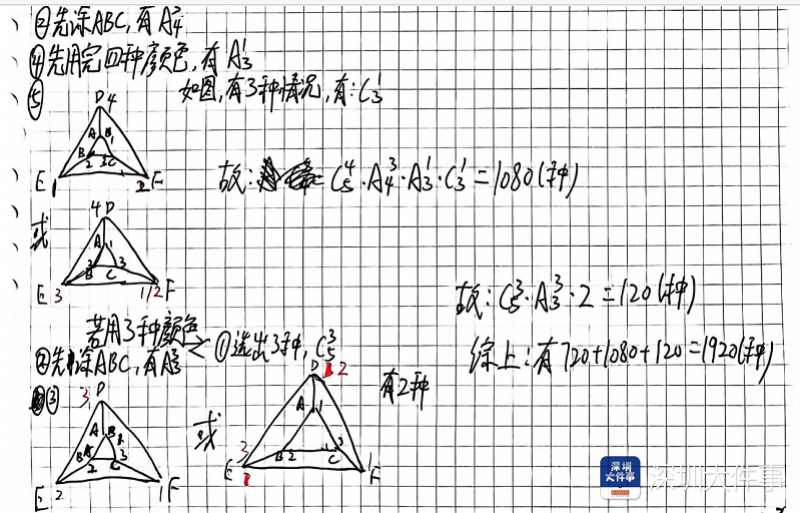 ②先涂ABC,有A³₄
④先用完四种颜色,有A¹₃
⑤
如图,有3种情况,有:C¹₃
D 4
A 1
B 2 3 C
E 1 2 F
故: C⁴₅·A³₄·A¹₃·C¹₃=1080(种)
或
4 D
A 1
B C 3
E 3 1/2 F
故:C³₅·A³₃·2=120(种)
若用3种颜色
①选出3种,C³₅
②先涂ABC,有A³₃
综上:有720+1080+120=1920(种)
③
3 D
A
B 2 C 3
E 2 1 F
或
D 2
A 1
B 2 C 3
E 3 1 F
有2种
深圳大件事
深圳大件事